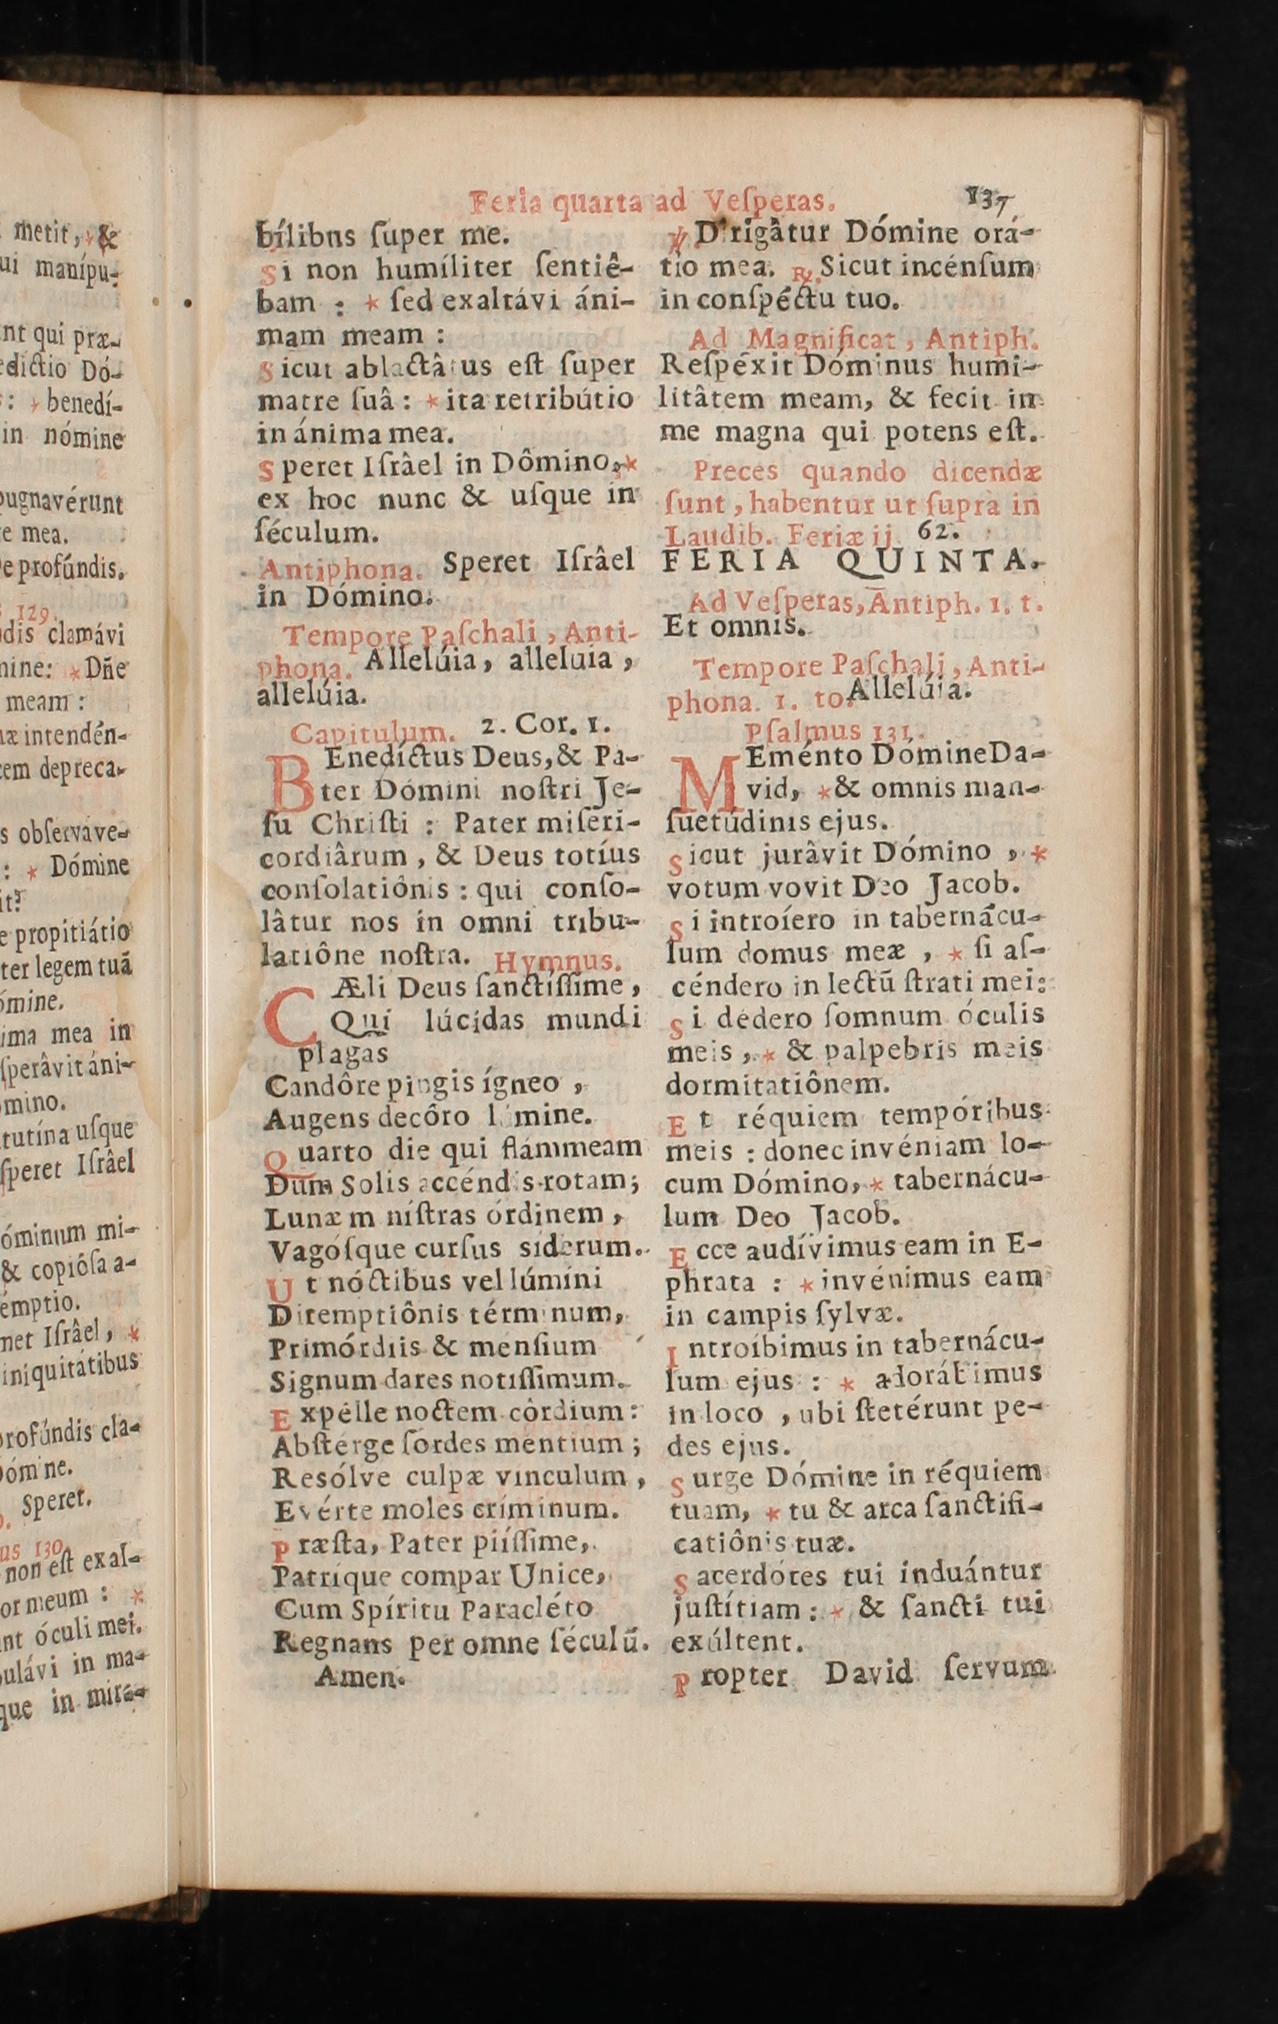 metit, &
ui manípu-
nt qui præ-
edictio Dó-
: * benedí-
in nómine
pugnavérunt
e mea.
e profúndis.
129.
dis clamávi
mine: * Dñe
meam :
æ intendén-
cem depreca-
s observave-
: * Dómine
it?
e propitiátio
ter legem tuā
ómine.
ima mea in
ſperâvit áni-
mino.
tutína uſque
ſperet Iſrâel
óminum mi-
& copióſa a-
émptio.
met Iſrâel, *
iniquitátibus
profúndis cla-
Dómine.
Speret.
us 130.
non eſt exal-
or meum : *
nt óculi mei.
bulávi in ma-
que in mirá-
Feria quarta ad Veſperas. 137
bílibns ſuper me.
Si non humíliter ſentiê-
bam : * ſed exaltávi áni-
mam meam :
Sicut ablactâtus eſt ſuper
matre ſuâ : * ita retribútio
in ánima mea.
Speret Iſrâel in Dômino, *
ex hoc nunc & uſque in
ſéculum.
Antiphona. Speret Iſrâel
in Dómino.
Tempore Paſchali, Anti-
phona. Allelúia, alleluia,
allelúia.
Capitulum. 2. Cor. 1.
BEnedíctus Deus, & Pa-
ter Dómini noſtri Je-
ſu Chriſti : Pater miſeri-
cordiârum, & Deus totíus
conſolatiônis : qui conſo-
lâtur nos in omni tribu-
latiône noſtra. Hymnus.
CÆli Deus ſanctíſſime,
Qui lúcidas mundi
plagas
Candôre pingis ígneo,
Augens decôro lumine.
Quarto die qui flámmeam
Dum Solis accéndis rotam;
Lunæ miníſtras órdinem,
Vagóſque curſus siderum.
Ut nóctibus vel lúmini
Diremptiônis términum,
Primórdiis & menſium
Signum dares notiſſimum.
Expélle noctem córdium:
Abſtérge ſordes mentium;
Resólve culpæ vinculum,
Evérte moles críminum.
Præſta, Pater piíſſime,
Patríque compar Unice,
Cum Spíritu Paracléto
Regnans per omne ſéculū.
Amen.
℣ Dirigâtur Dómine orá-
tio mea. ℟. Sicut incénſum
in conſpéctu tuo.
Ad Magnificat, Antiph.
Reſpéxit Dóminus humi-
litâtem meam, & fecit in
me magna qui potens eſt.
Preces quando dicendæ
ſunt, habentur ut ſupra in
Laudib. Feriæ ij. 62.
FERIA QUINTA.
Ad Veſperas, Antiph. 1. t.
Et omnis.
Tempore Paſchali, Anti-
phona. 1. to. Allelúia.
Pſalmus 131.
MEménto Dómine Da-
vid, * & omnis man-
ſuetúdinis ejus.
Sicut jurâvit Dómino, *
votum vovit Deo Jacob.
Si introíero in tabernácu-
lum domus meæ, * ſi aſ-
céndero in lectū ſtrati mei:
Si dédero ſomnum óculis
meis, * & palpebris meis
dormitatiônem.
Et réquiem tempóribus
meis : donec invéniam lo-
cum Dómino, * tabernácu-
lum Deo Jacob.
Ecce audívimus eam in E-
phrata : * invénimus eam
in campis ſylvæ.
Introíbimus in tabernácu-
lum ejus : * adorábimus
in loco, ubi ſtetérunt pe-
des ejus.
Surge Dómine in réquiem
tuam, * tu & arca ſanctifi-
catiônis tuæ.
Sacerdótes tui induántur
juſtítiam : * & ſancti tui
exúltent.
Propter David ſervum